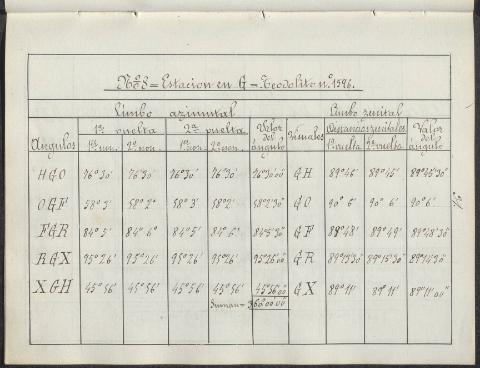 Nº 8 = Estacion en G = Teodolito nº 1596.
Limbo azimutal Limbo zenital
Angulos 1ª vuelta 2ª vuelta Valor del ángulo Visuales Distancias zenitales Valor del ángulo
1er non. 2º non. 1er non. 2º non. 1ª vuelta 2ª vuelta
HGO 76°30' 76°30' 76°30' 76°30' 76°30'00 GH 89°46' 89°45' 89°45'30"
OGF 58°3' 58°2' 58°3' 58°2' 58°2'30 GO 90°6' 90°6' 90°6'
FGR 84°5' 84°6' 84°5' 84°6' 84°5'30 GF 89°48' 89°49' 89°48'30"
RGX 95°26' 95°26' 95°26' 95°26' 95°26'00 GR 89°13'30 89°15'30" 89°14'30
XGH 45°56' 45°56' 45°56' 45°56' 45°56'00 GX 89°11' 89°11' 89°11'00"
Suman = 360°00'00